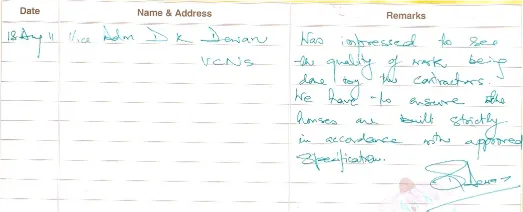 Date Name & Address Remarks
18 Aug 11 Vice Adm D K Dewan Was impressed to see
VCNS the quality of work being
done by the Contractors.
We have to ensure the
houses are built strictly
in accordance with approved
specification.
Dewan